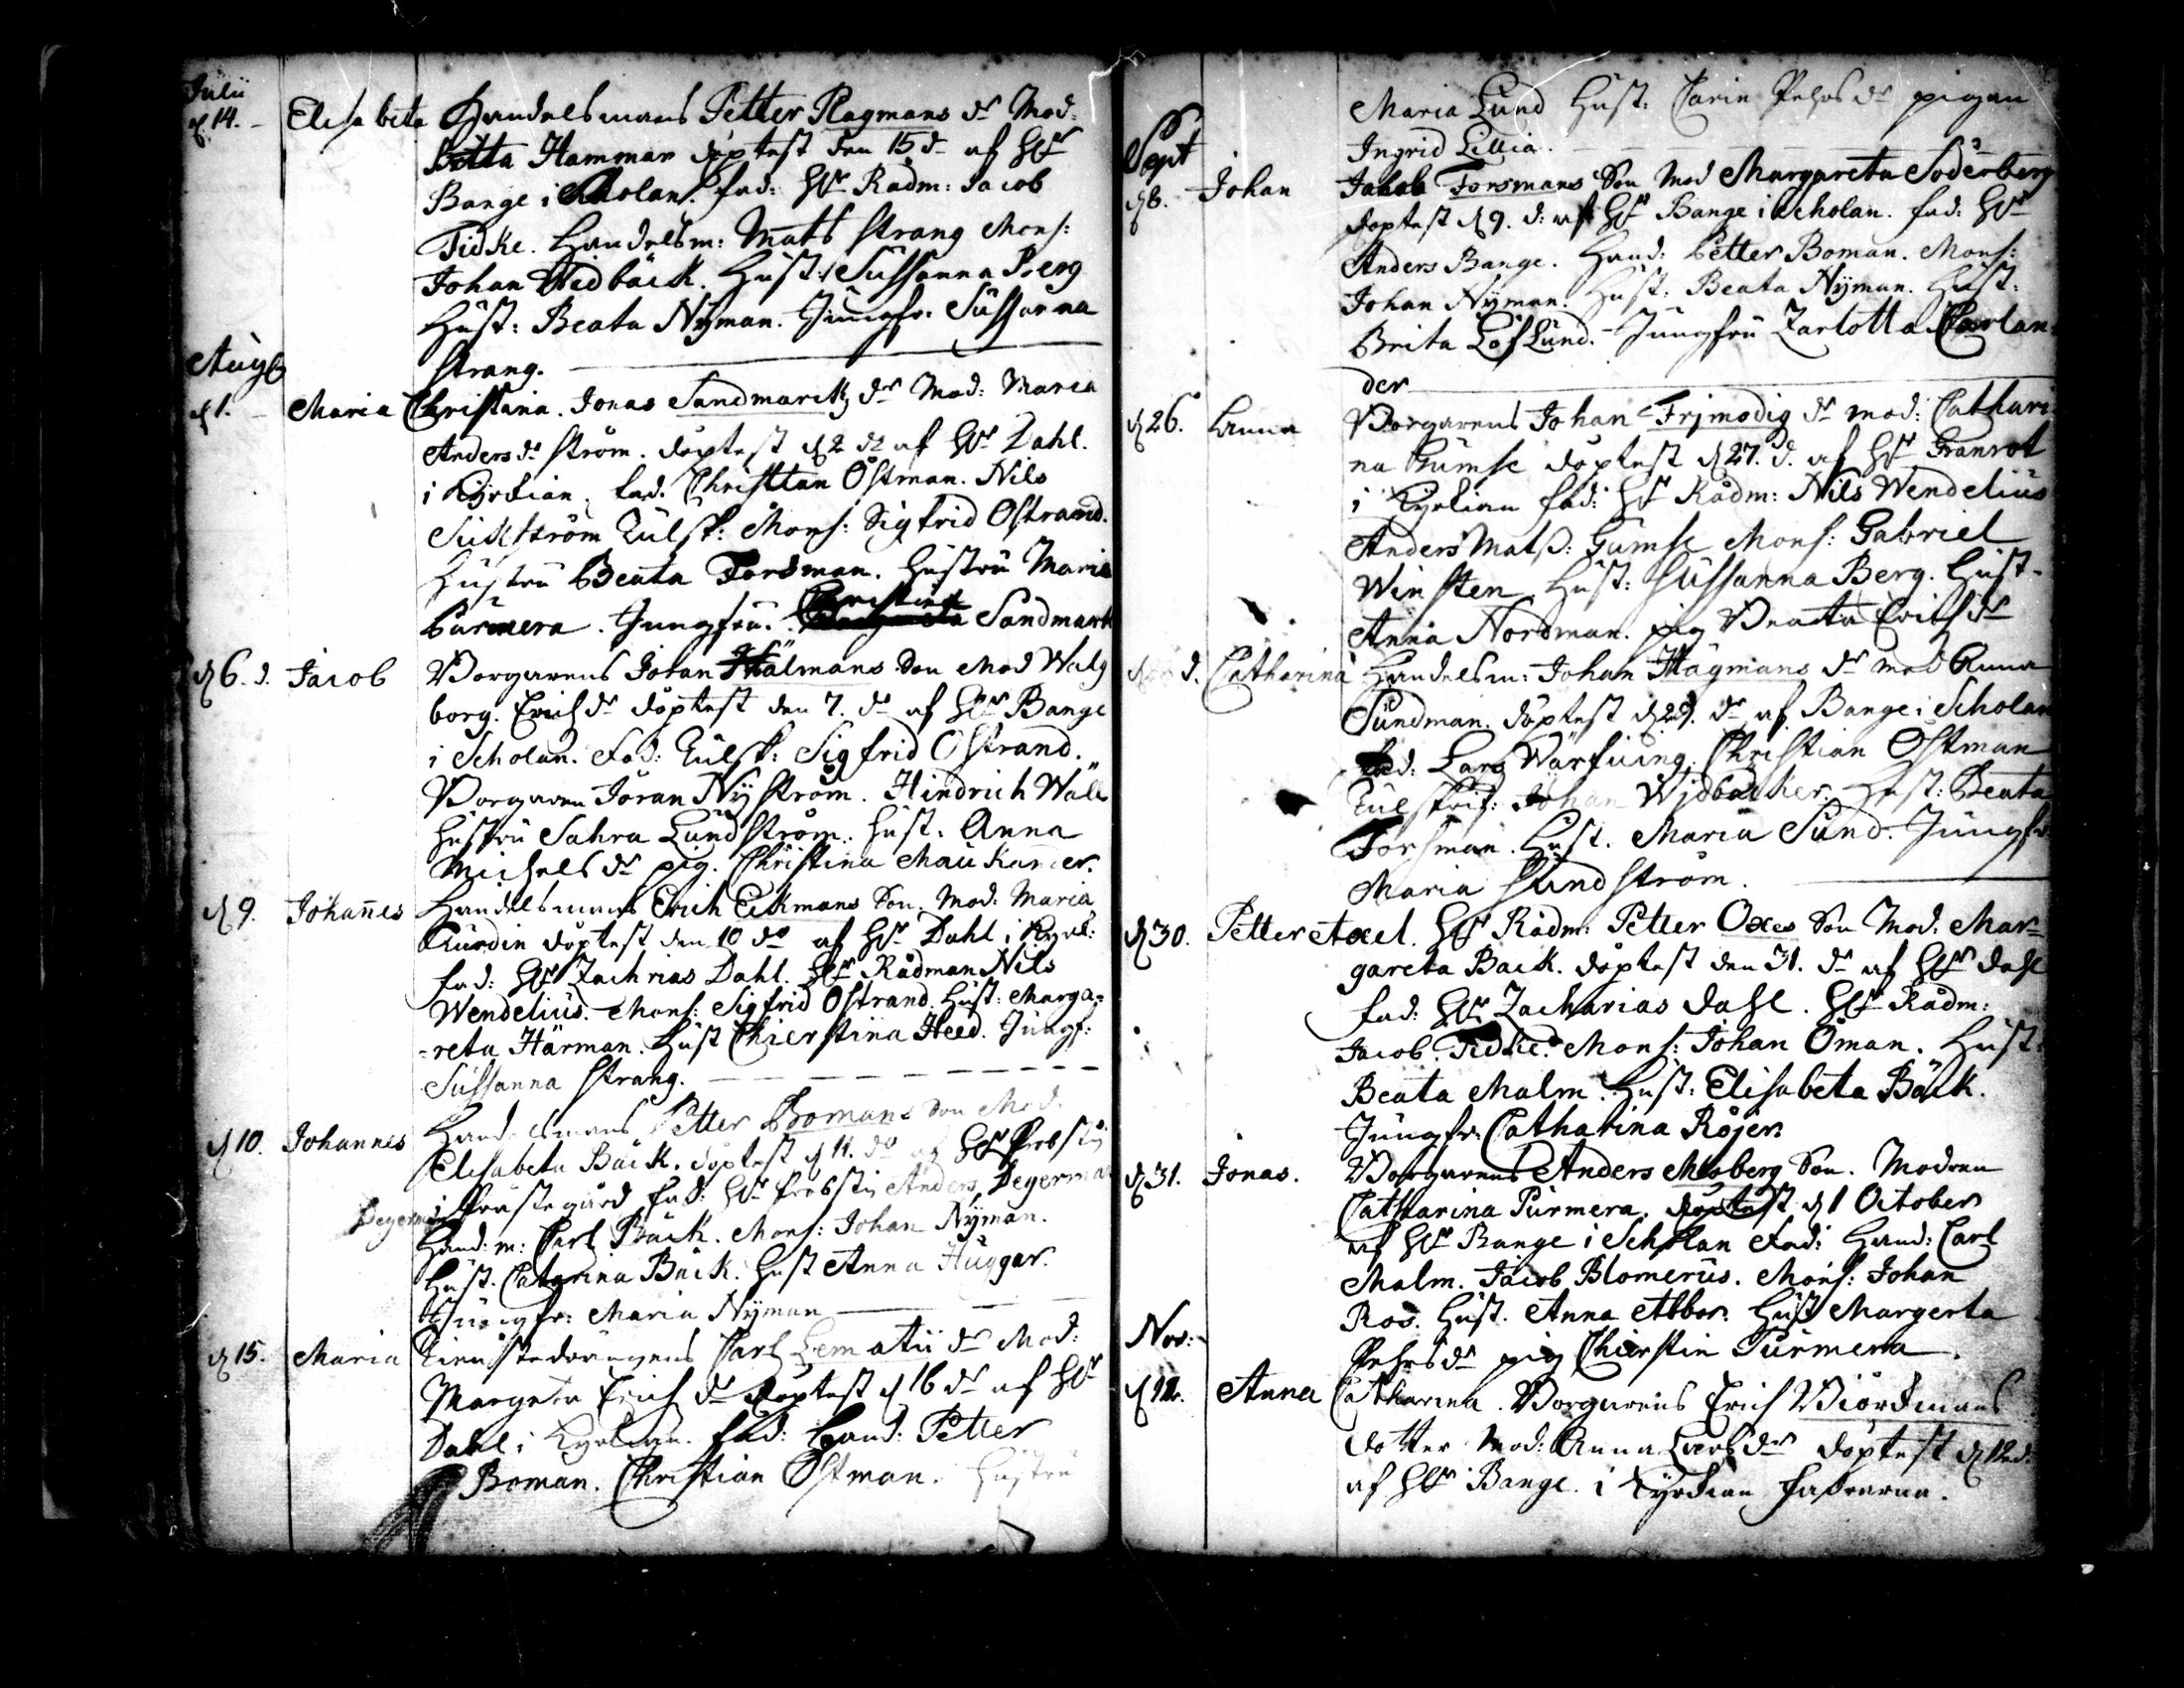 Julii
d. 14. Elisabeta Handelsmans Petter Plagmans dr Mod:
Britta Hammar döptest den 15 d af Hr
Bange i Scholan. fad: Hr Rådm: Jacob
Tidke. Handelsm: Mats Strang Mons:
Johan Widbäck. Hust: Sussanna Berg
Hust: Beata Nyman. Jungfr: Sussanna
Strang.
Aug
d 1. Maria Christina. Jonas Sandmarck dr Mod: Maria
Anders dr Ström. döptest d 2 d af Hr Dahl.
i Kyrkian. fad. Christian Östman. Nils
ström Tulsk: Mons: Sigfrid Östrand.
Hustru Beata Forsman. Hustru Maria
Purmera. Jungfru. Christina Sandmark
d 6. d. Jacob Borgarens Johan Hålmans Son Mod Walg
borg. Erichs dr döptest den 7. d af Hr Bange
i Scholan. Fad: Tulsk: Sigfrid Östrand.
Borgaren Jöran Nyström. Hindrich Wäll
hustru Sahra Lundström. hust. Anna
Michels dr pig. Christina Maukander.
d 9. Johannes Handelsmans Erich Eekmans Son. Mod: Maria
döptest den 10 do af Hr Dahl i Kyrk:
fad: Hr Zachrias Dahl. Hr Rådman Nils
Wendelius. Mons: Sigfrid Östrand. Hust: Marga-
-reta Härman. Hust Chierstina Heed. Jungf:
Sussanna Strang.
Handelsmans Petter Bomans Son Mod.
d 10. Johannes Elisabeta Bäck. döptest d 11. do af Hr Probstij
i Prästegård fad: Hr Probstij Anders Degerman
Degerman
Hand: m: Carl Bäck. Mons: Johan Nyman.
Hust. Catarina Bäck. Hust Anna Huggar.
Jungfr: Maria Nyman
d 15. Maria Tienstedrängens Carl Lematii dr Mod:
Margeta Erichs dr döptest d 16 d af Hr
Dahl i Kyrkian. fad: Hand: Petter
Boman. Christian Östman. Hustru
Maria Lund Hust: Carin Pehrs dr pigan
Ingrid Lillia.
Sept
d 8. Johan Jakob Forsmans Son Mod Margareta Söderberg
döptest d 9. d: af Hr Bange i Scholan. fad: Hr
Anders Bange. Hand: Petter Boman. Mons:
Johan Nyman. Hust: Beata Nyman. Hust:
Brita Löflund. Jungfru Zarlotta Carlan-
der
d 26. Anna Borgarens Johan Frjmodig dr mod: Cathari
na Gumse döptest d 27. d. af Hr Granrot
i Kyrkian fad: Hr Rådm: Nils Wendelius
Anders Matss: Gumse Mons: Gabriel
Winsten. Hust: Sussanna Berg. Hust.
Anna Nordman. pig Beata Erichs dr
d. Catharina Handelsm: Johan Hägmans dr mod Anna
Sundman. döptest d 29. d af Bange i Scholan
fad: Lars Christian Östman
Johan Widbäcker. Hust: Beata
Forsman. Hust. Maria Sund. Jungfr
Maria Sundström.
d 30. Petter Axel. Hr Rådm: Petter Oxes Son Mod: Mar-
gareta Back. döptest den 31. d af Hr Dahl
fad: Hr Zacharias Dahl. Hr Rådm:
Jacob Tidke. Mons: Johan Öman. Hust:
Beata Malm. Hust: Elisabeta Bäck.
Jungfr: Catharina Röjer
d 31. Jonas. Borgarens Anders Moberg Son. Modren
Catharina Purmera. döptest d 1 October
af Hr Bange i Scholan Fad: Hand: Carl
Malm. Jacob Blomerus. Mons: Johan
Ros. Hust. Anna Abbor. Hust Margerta
Pehrs dr pig Chierstin Purmera.
Nov:
d 12. Anna Catharina. Borgarens Erich Biörkmans
dotter Mod: Anna Lars dr döptest d 12 d:
af Hr Bange. i Kyrkian fadrarna.